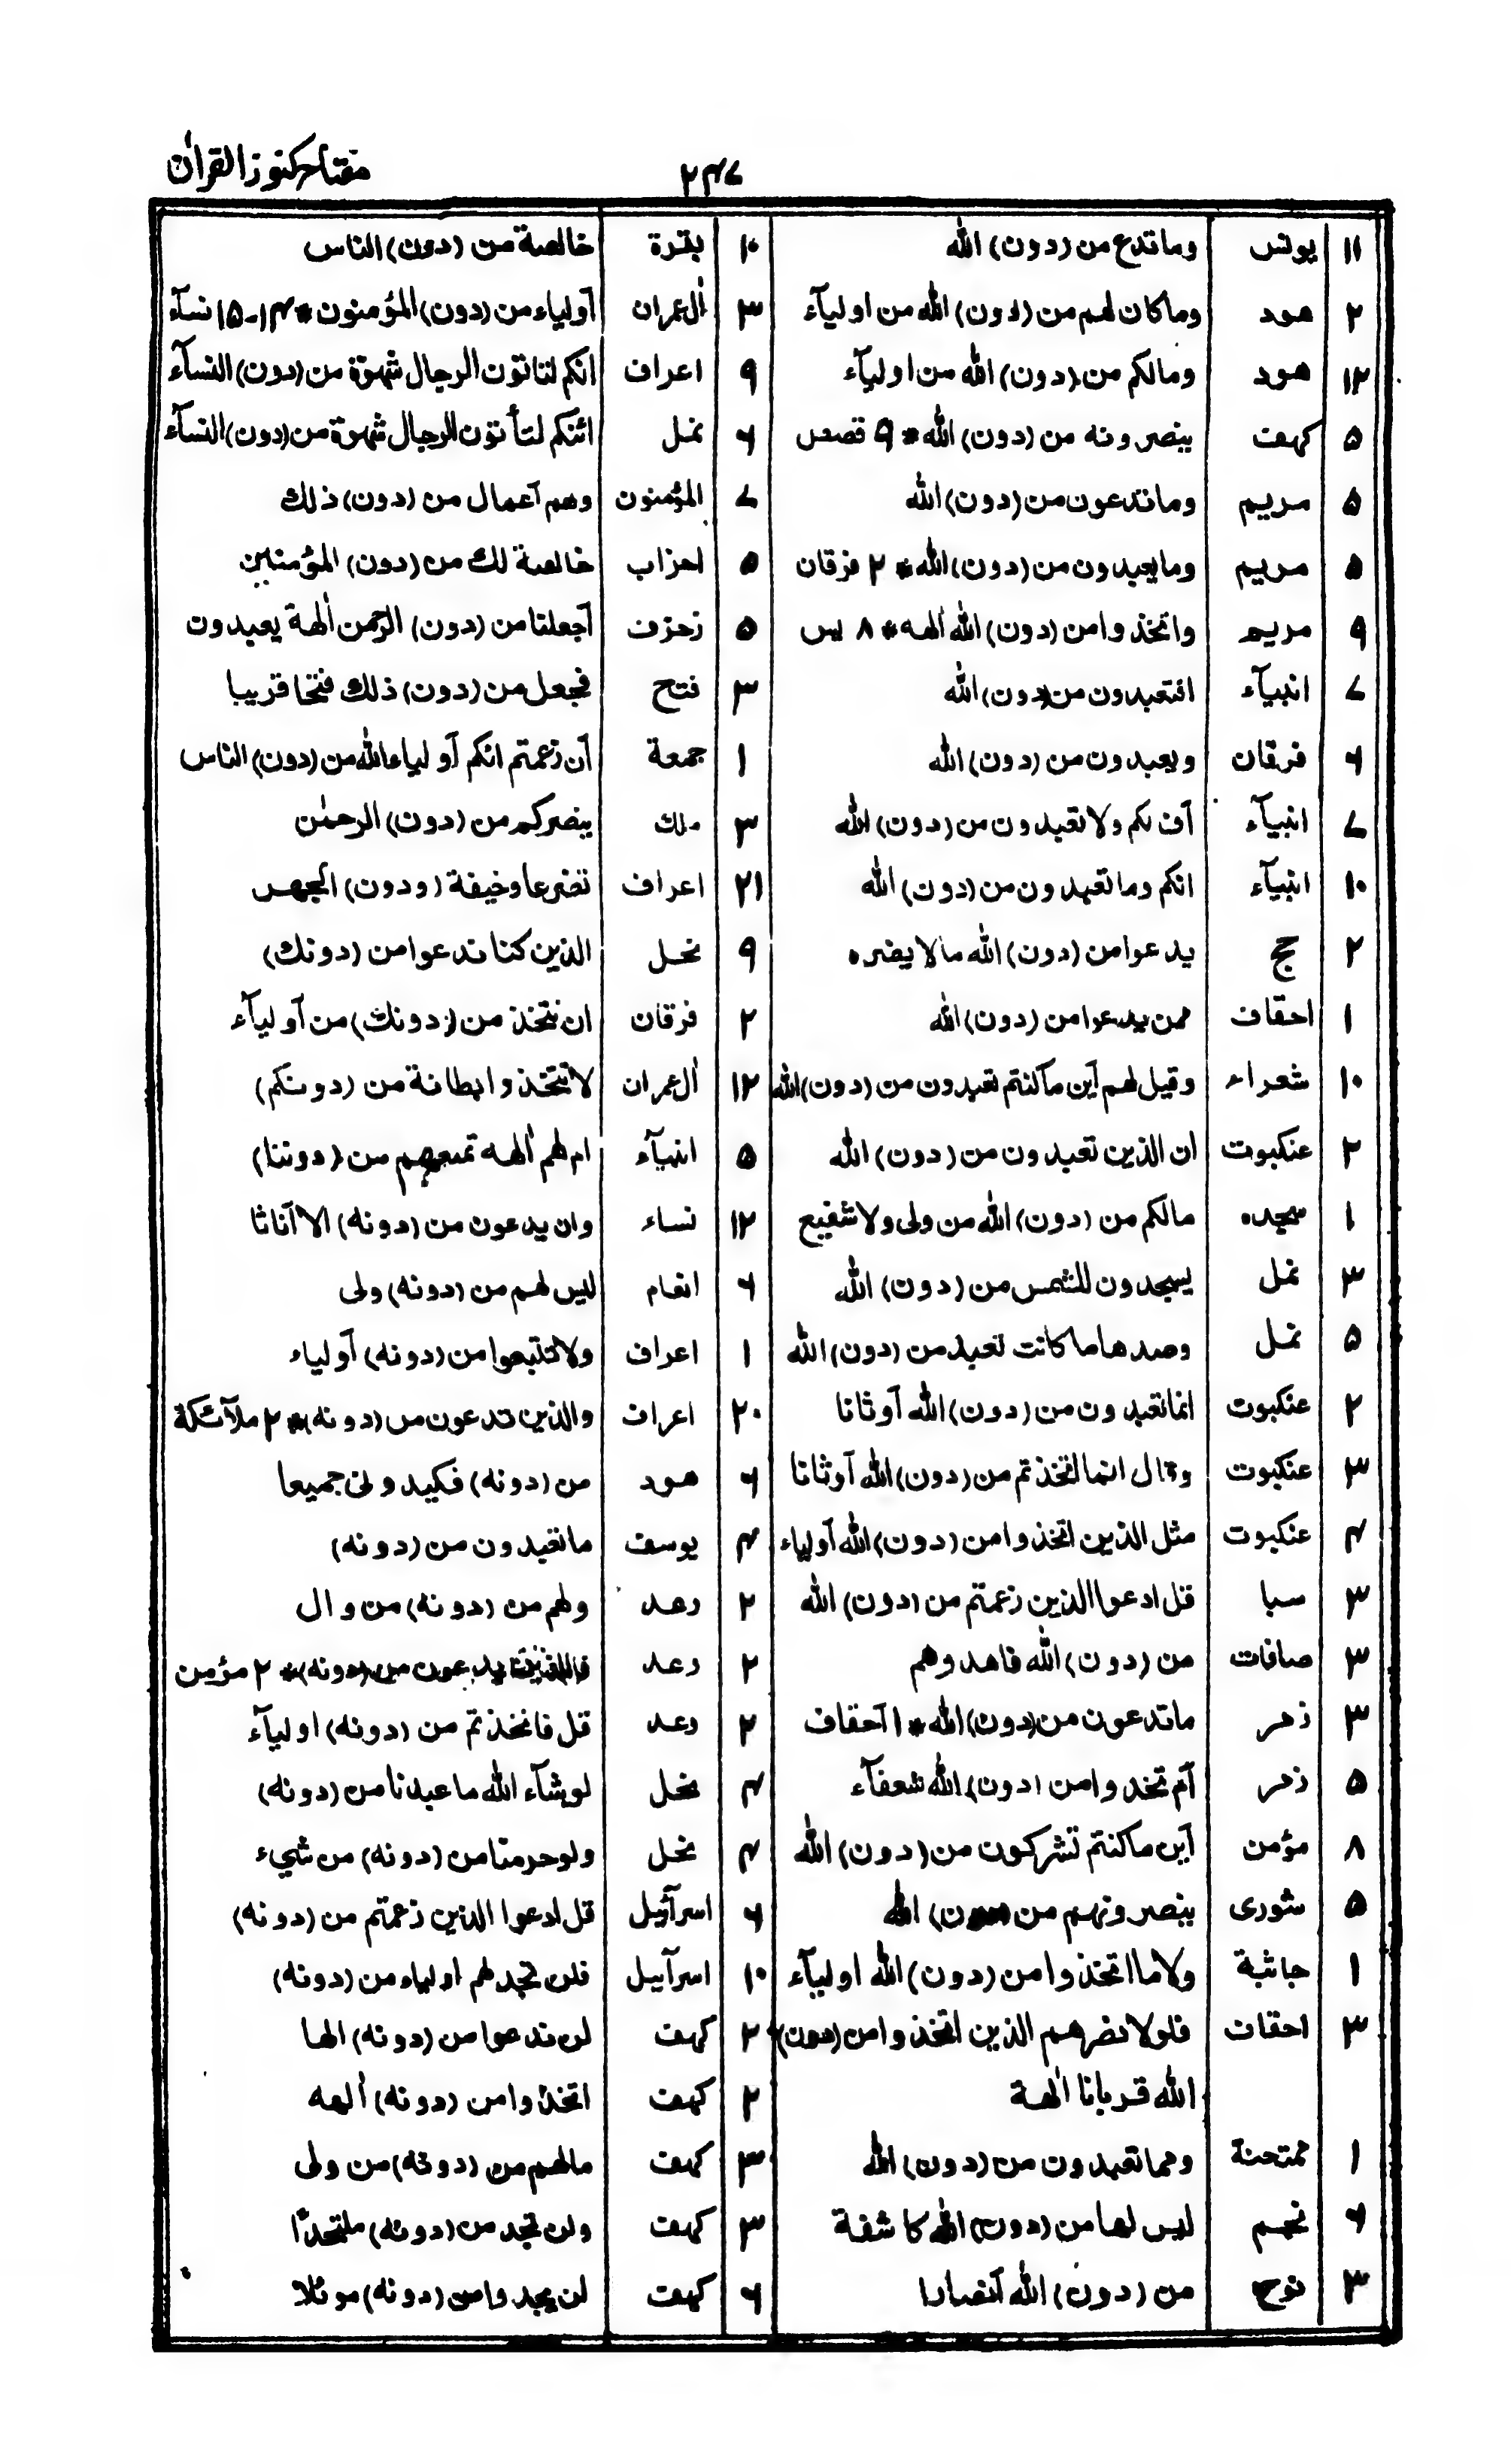 مفتاح کنوز القراٰن
۲۴۷
۱۱ یونس وما تدع من (دون) الله
۲ هود وما کان لهم من (دون) الله من اولیآء
۱۲ هود ومالکم من (دون) الله من اولیآء
۵ کهف ینصرونه من (دون) الله * ۹ قصص
۵ مریم وماتدعون من (دون) الله
۵ مریم ومایعبدون من (دون) الله * ۲ فرقان
۹ مریم واتخذوامن (دون) الله اٰلهه * ۸ یس
۷ انبیآء افتعبدون من (دون) الله
۶ فرقان ویعبدون من (دون) الله
۷ انبیآء آف لکم ولاتعبدون من (دون) الله
۱۰ انبیآء انکم وماتعبدون من (دون) الله
۲ حج یدعوامن (دون) الله مالایضره
۱ احقاف ممن یدعوامن (دون) الله
۱۰ شعراء وقیل لهم آین ماکنتم تعبدون من (دون) الله
۲ عنکبوت ان الذین تعبدون من (دون) الله
۱ سجده مالکم من (دون) الله من ولی ولاشفیع
۳ نمل یسجدون للشمس من (دون) الله
۵ نمل وصدهاماکانت تعبد من (دون) الله
۲ عنکبوت انماتعبدون من (دون) الله آوثانا
۳ عنکبوت وقال انمااتخذتم من (دون) الله آوثانا
۴ عنکبوت مثل الذین اتخذوامن (دون) الله آولیاء
۳ سبا قل ادعواالذین زعمتم من (دون) الله
۳ صافات من (دون) الله فاهدوهم
۳ زمر ماتدعون من (دون) الله * ۱ آحقاف
۵ زمر آم تخذوامن (دون) الله شعفآء
۸ مؤمن آین ماکنتم تشرکون من (دون) الله
۵ شوری ینصرونهم من (دون) الله
۱ جاثیة ولامااتخذوامن (دون) الله اولیآء
۳ احقاف فلولانصرهم الذین اتخذوامن (دون)
الله قربانا اٰلهة
۱ ممتحنة ومماتعبدون من (دون) الله
۶ نجم لیس لهامن (دون) الله کاشفة
۳ نوح من (دون) الله آنصارا
۱۰ بقرة خالصة من (دون) الناس
۳ اٰل عمران آولیاء من (دون) المؤمنون * ۱۴-۱۵ نسآء
۹ اعراف انکم لتاتون الرجال شهوة من (دون) النسآء
۶ نمل ائنکم لتأتون الرجال شهوة من (دون) النسآء
۷ المؤمنون وهم آعمال من (دون) ذلك
۵ احزاب خالصة لك من (دون) المؤمنین
۵ زحزف آجعلنامن (دون) الرحمن اٰلهة یعبدون
۳ فتح فجعل من (دون) ذلك فتحاقریبا
۱ جمعة آن زعمتم انکم آولیاءالله من (دون) الناس
۳ ملك ینصرکم من (دون) الرحمٰن
۲۱ اعراف تضرعاوخیفة (ودون) الجهر
۹ نحل الذین کناندعوامن (دونك)
۲ فرقان ان نتخذ من (دونك) من آولیآء
۱۲ اٰل عمران لاتتخذوابطانة من (دونکم)
۵ انبیآء ام لهم اٰلهه تمنعهم من (دوننا)
۱۲ نساء وان یدعون من (دونه) الاآناثا
۶ انعام لیس لهم من (دونه) ولی
۱ اعراف ولاتتبعوامن (دونه) آولیاء
۲۰ اعراف والذین تدعون من (دونه) * ۲ ملآئکة
۶ هود من (دونه) فکیدونی جمیعا
۴ یوسف ماتعبدون من (دونه)
۲ رعد ولهم من (دونه) من وال
۲ رعد یدعون من (دونه) * ۲ مؤمن
۲ رعد قل فاتخذتم من (دونه) اولیآء
۴ نحل لوشآء الله ماعبدنامن (دونه)
۴ نحل ولوحرمنامن (دونه) من شیء
۶ اسرآئیل قل ادعوا الذین زعمتم من (دونه)
۱۰ اسرآییل فلن تجدلهم اولیاء من (دونه)
۲ کهف لن ندعوامن (دونه) الها
۲ کهف اتخذوامن (دونه) اٰلهه
۳ کهف مالهم من (دونه) من ولی
۳ کهف ولن تجد من (دونه) ملتحدًا
۶ کهف لن یجدوامن (دونه) موئلا